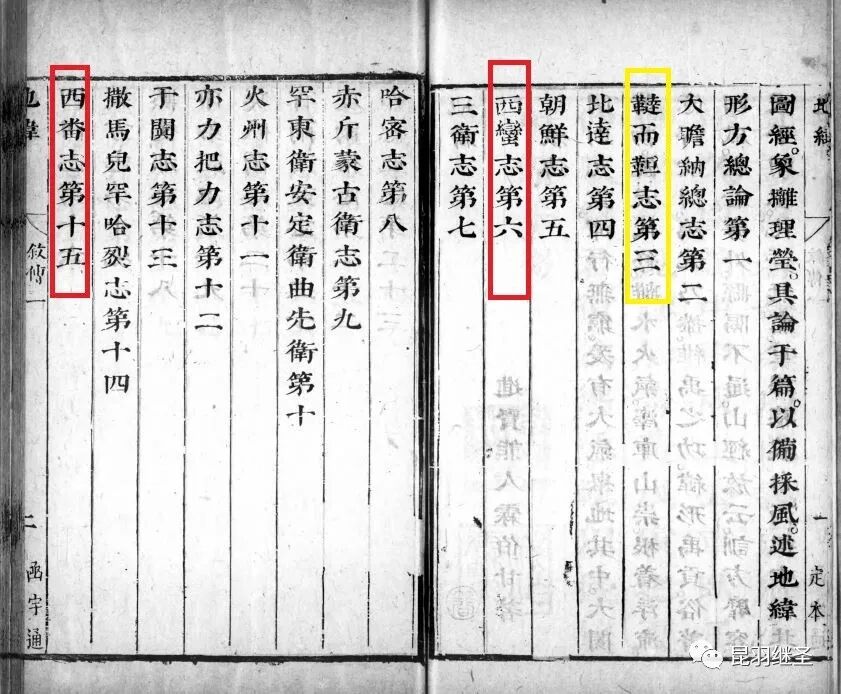 圖經。象攡理瑩。具論于篇。以備採風。述地緯
形方總論第一
大瞻納總志第二
韃而靼志第三
比達志第四
朝鮮志第五
西蠻志第六
三衛志第七
哈密志第八
赤斤蒙古衛志第九
罕東衛安定衛曲先衛第十
火州志第十一
亦力把力志第十二
于闐志第十三
撒馬兒罕哈裂志第十四
西番志第十五
地緯 敘傳一 二 函宇通
昆羽继圣